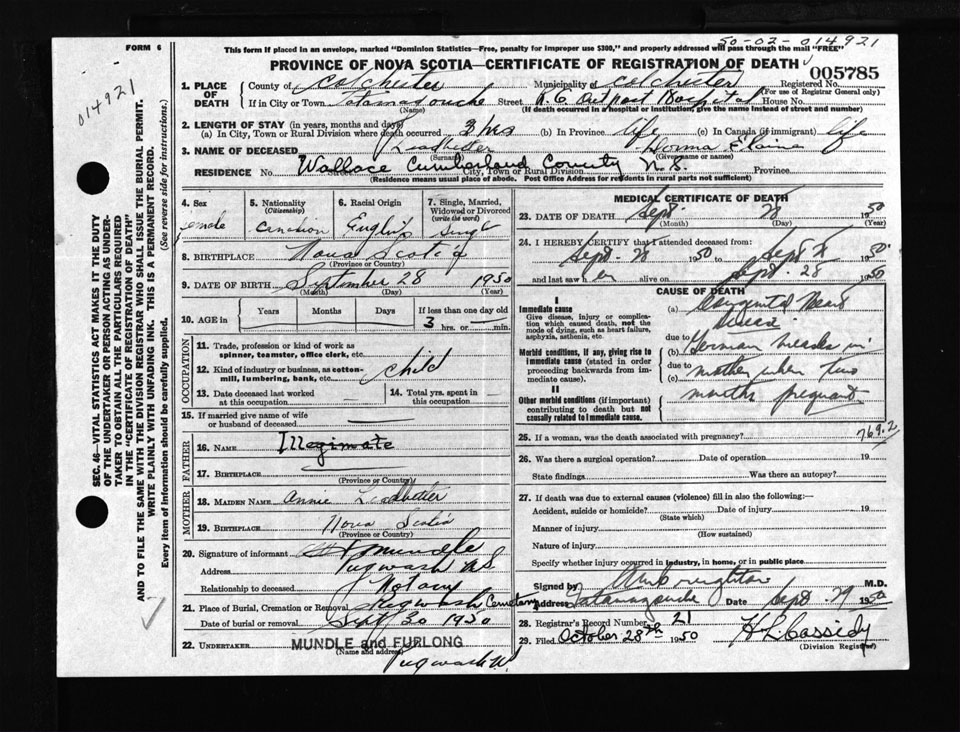 50-02-014921
FORM 6
This form if placed in an envelope, marked "Dominion Statistics—Free, penalty for improper use $300," and properly addressed will pass through the mail "FREE"
PROVINCE OF NOVA SCOTIA—CERTIFICATE OF REGISTRATION OF DEATH
005785
014921
SEC. 46—VITAL STATISTICS ACT MAKES IT THE DUTY
OF THE UNDERTAKER OR PERSON ACTING AS UNDER-
TAKER TO OBTAIN ALL THE PARTICULARS REQUIRED
IN THE "CERTIFICATE OF REGISTRATION OF DEATH"
AND TO FILE THE SAME WITH THE DIVISION REGISTRAR WHO SHALL ISSUE THE BURIAL PERMIT.
WRITE PLAINLY WITH UNFADING INK. THIS IS A PERMANENT RECORD.
Every item of Information should be carefully supplied. (See reverse side for instructions.)
1. PLACE OF DEATH County of Colchester Municipality of Colchester Registered No.
(For use of Registrar General only)
If in City or Town Tatamagouche Street R.C. Outpost Hospital House No.
(Name) (If death occurred in a hospital or institution, give the name instead of street and number)
2. LENGTH OF STAY (in years, months and days)
(a) In City, Town or Rural Division where death occurred 3 hrs (b) In Province life (c) In Canada (if immigrant) life
3. NAME OF DECEASED Leadbetter Norma Elaine
(Surname) (Given name or names)
RESIDENCE No. Wallace Cumberland County N.S. City, Town or Rural Division Province
(Residence means usual place of abode. Post Office Address for residents in rural parts not sufficient)
4. Sex female
5. Nationality (Citizenship) Canadian
6. Racial Origin English
7. Single, Married, Widowed or Divorced (write the word) Single
8. BIRTHPLACE Nova Scotia
(Province or Country)
9. DATE OF BIRTH September 28 1950
(Month) (Day) (Year)
10. AGE in Years Months Days If less than one day old
3 hrs. or min.
OCCUPATION
11. Trade, profession or kind of work as
spinner, teamster, office clerk, etc.
12. Kind of industry or business, as cotton-
mill, lumbering, bank, etc. child
13. Date deceased last worked
at this occupation
14. Total yrs. spent in
this occupation
15. If married give name of wife
or husband of deceased
FATHER
16. NAME Illegimate
17. BIRTHPLACE
(Province or Country)
MOTHER
18. MAIDEN NAME Annie Leadbetter
19. BIRTHPLACE Nova Scotia
(Province or Country)
20. Signature of informant Mundle
Address Pugwash N.S.
Relationship to deceased Notany
21. Place of Burial, Cremation or Removal Pugwash Cemetery
Date of burial or removal Sept 30 1950
22. UNDERTAKER MUNDLE and FURLONG
(Name and address)
Pugwash N.
MEDICAL CERTIFICATE OF DEATH
23. DATE OF DEATH Sept. 28 1950
(Month) (Day) (Year)
24. I HEREBY CERTIFY that I attended deceased from:
Sept. 28 1950 to Sept 1950
and last saw h er alive on Sept. 28 1950
CAUSE OF DEATH
I
Immediate cause
Give disease, injury or complica-
tion which caused death, not the
mode of dying, such as heart failure,
asphyxia, asthenia, etc.
Morbid conditions, if any, giving rise to
immediate cause (stated in order
proceeding backwards from im-
mediate cause).
II
Other morbid conditions (if important)
contributing to death but not
causally related to immediate cause.
(a) Congenital Heart
due to
(b) German measles in
due to
(c) mother when two
months pregnant
769.2
25. If a woman, was the death associated with pregnancy?
26. Was there a surgical operation? Date of operation 19
State findings Was there an autopsy?
27. If death was due to external causes (violence) fill in also the following:
Accident, suicide or homicide? Date of injury 19
(State which)
Manner of injury
(How sustained)
Nature of injury
Specify whether injury occurred in industry, in home, or in public place
Signed by Creighton M.D.
Address Tatamagouche Date Sept. 29 1950
28. Registrar's Record Number 21
29. Filed October 28th 1950 H.L. Cassidy
(Division Registrar)